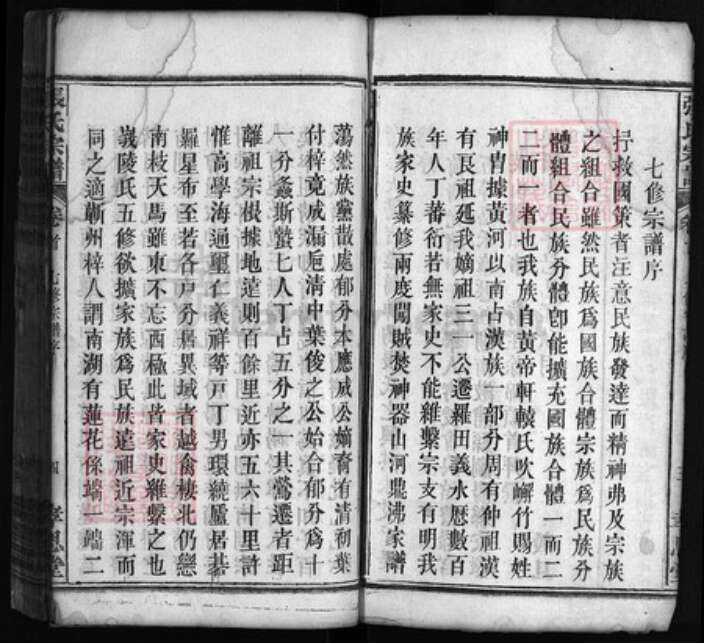 七修宗譜序
抍救國策者注意民族發達而精神弗及宗族
之組合雖然民族爲國族合體宗族爲民族分
體組合民族分體卽能擴充國族合體一而二
二而一者也我族自黃帝軒轅氏吹嶰竹賜姓
神胄據黃河以南占漢族一部分周有仲祖漢
有良祖延我嫡祖三一公遷羅田義水歷數百
年人丁蕃衍若無家史不能維繫宗支有明我
族家史纂修兩度闖賊焚神器山河鼎沸家譜
蕩然族黨散處郁分本應威公嫡裔有清初葉
付梓竟成漏巵清中葉俊之公始合郁分爲十
一分螽斯蟄蟄七人丁占五分之一其鶯遷者距
離祖宗根據地遠則百餘里近亦五六十里許
惟高學海通聖仁義祥等戸丁男環繞廬居基
羅星布至若各戸分徙異域者越禽棲北仍戀
南枝天馬雖東不忘西極此皆家史維繫之也
嵗陵氏五修欲擴家族爲民族遠祖近宗渾而
同之適蘄州梓八謂南湖有蓮花係端一端二
張氏宗譜
卷首
七修宗譜序
四
孝思堂